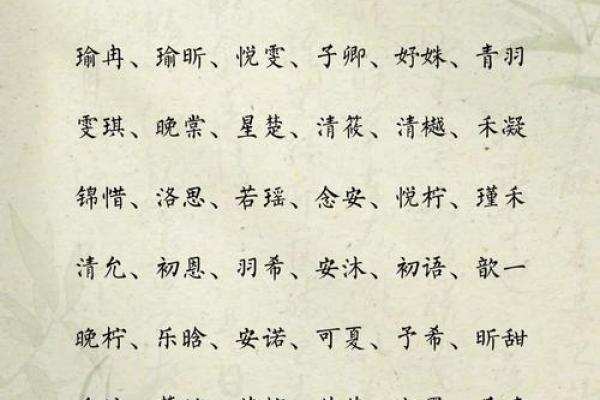 瑜冉、瑜昕、悦雯、子卿、妤姝、青羽
雯琪、晚棠、星楚、清筱、清樾、禾凝
锦惜、洛思、若瑶、念安、悦柠、瑾禾
清允、初恩、羽希、安沐、初语、歆一
晚柠、乐晗、安诺、可夏、予希、昕甜